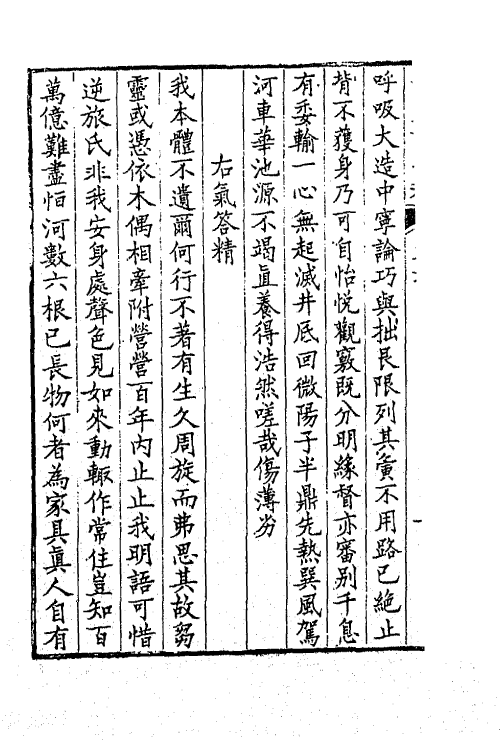 呼吸大造中寧論巧與拙艮限列其夤不用路已絶止
背不獲身乃可自怡悦觀竅既分明緣督亦審别千息
有委輸一心無起滅井底回微陽子半鼎先熱巽風駕
河車華池源不竭直養得浩然嗟哉傷薄劣
右氣答精
我本體不遺爾何行不著有生久周旋而弗思其故芻
靈或憑依木偶相牽附營營百年内止止我明語可惜
逆旅氏非我安身處聲色見如來動輒作常住豈知百
萬億難盡恒河數六根已長物何者為家具真人自有